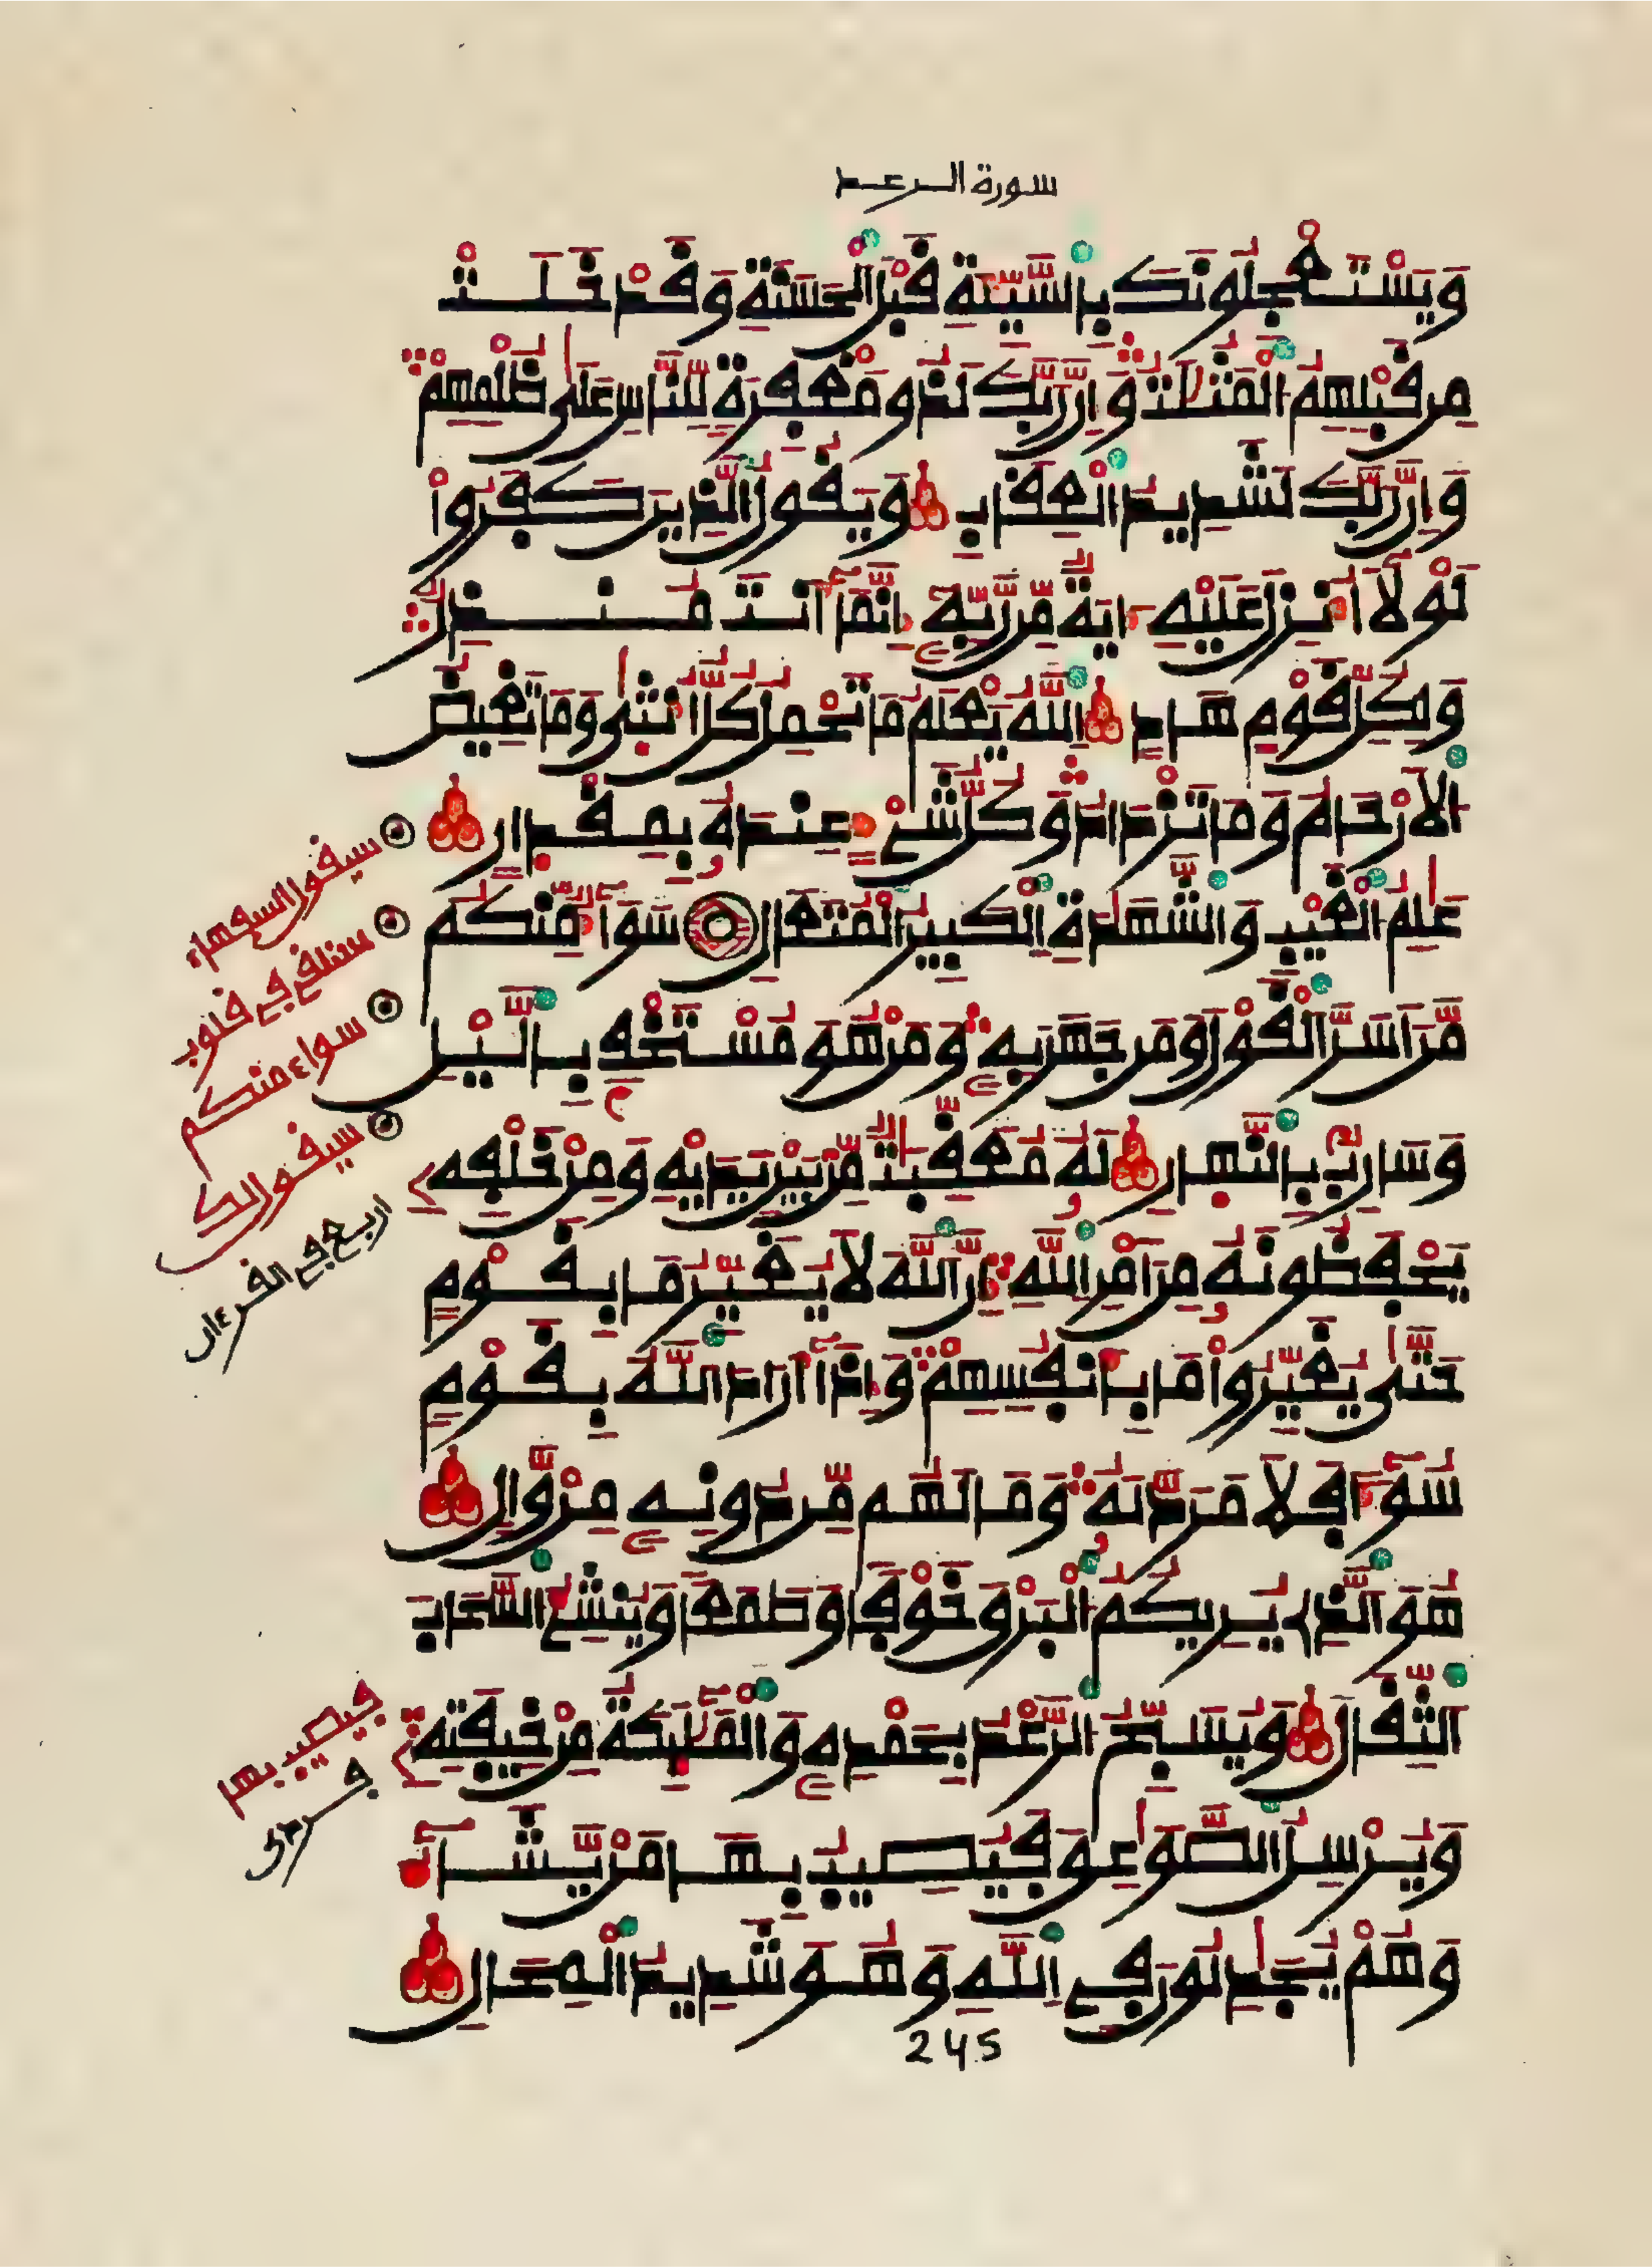 سورة الرعد
وَيَسْتَعْجِلُونَكَ بِالسَّيِّئَةِ قَبْلَ الْحَسَنَةِ وَقَدْ خَلَتْ
مِن قَبْلِهِمُ الْمَثُلَٰتُ وَإِنَّ رَبَّكَ لَذُو مَغْفِرَةٍ لِّلنَّاسِ عَلَىٰ ظُلْمِهِمْ
وَإِنَّ رَبَّكَ لَشَدِيدُ الْعِقَابِ وَيَقُولُ الَّذِينَ كَفَرُوا
لَوْلَا أُنزِلَ عَلَيْهِ ءَايَةٌ مِّن رَّبِّهِ إِنَّمَا أَنتَ مُنذِرٌ
وَلِكُلِّ قَوْمٍ هَادٍ اللَّهُ يَعْلَمُ مَا تَحْمِلُ كُلُّ أُنثَىٰ وَمَا تَغِيضُ
الْأَرْحَامُ وَمَا تَزْدَادُ وَكُلُّ شَيْءٍ عِندَهُ بِمِقْدَارٍ
عَٰلِمُ الْغَيْبِ وَالشَّهَٰدَةِ الْكَبِيرُ الْمُتَعَالِ سَوَاءٌ مِّنكُم
مَّنْ أَسَرَّ الْقَوْلَ وَمَن جَهَرَ بِهِ وَمَنْ هُوَ مُسْتَخْفٍ بِالَّيْلِ
وَسَارِبٌ بِالنَّهَارِ لَهُ مُعَقِّبَٰتٌ مِّن بَيْنِ يَدَيْهِ وَمِنْ خَلْفِهِ
يَحْفَظُونَهُ مِنْ أَمْرِ اللَّهِ إِنَّ اللَّهَ لَا يُغَيِّرُ مَا بِقَوْمٍ
حَتَّىٰ يُغَيِّرُوا مَا بِأَنفُسِهِمْ وَإِذَا أَرَادَ اللَّهُ بِقَوْمٍ
سُوءًا فَلَا مَرَدَّ لَهُ وَمَا لَهُم مِّن دُونِهِ مِنْ وَّالٍ
هُوَ الَّذِي يُرِيكُمُ الْبَرْقَ خَوْفًا وَطَمَعًا وَيُنشِئُ السَّحَابَ
الثِّقَالَ وَيُسَبِّحُ الرَّعْدُ بِحَمْدِهِ وَالْمَلَٰئِكَةُ مِنْ خِيفَتِهِ
وَيُرْسِلُ الصَّوَٰعِقَ فَيُصِيبُ بِهَا مَنْ يَّشَاءُ
وَهُمْ يُجَٰدِلُونَ فِي اللَّهِ وَهُوَ شَدِيدُ الْمِحَالِ
245
سيقول السفهاء
سنلقي في قلوب
سواء منكم
سيقول لك
اربع في القرءان
فيصيب بها